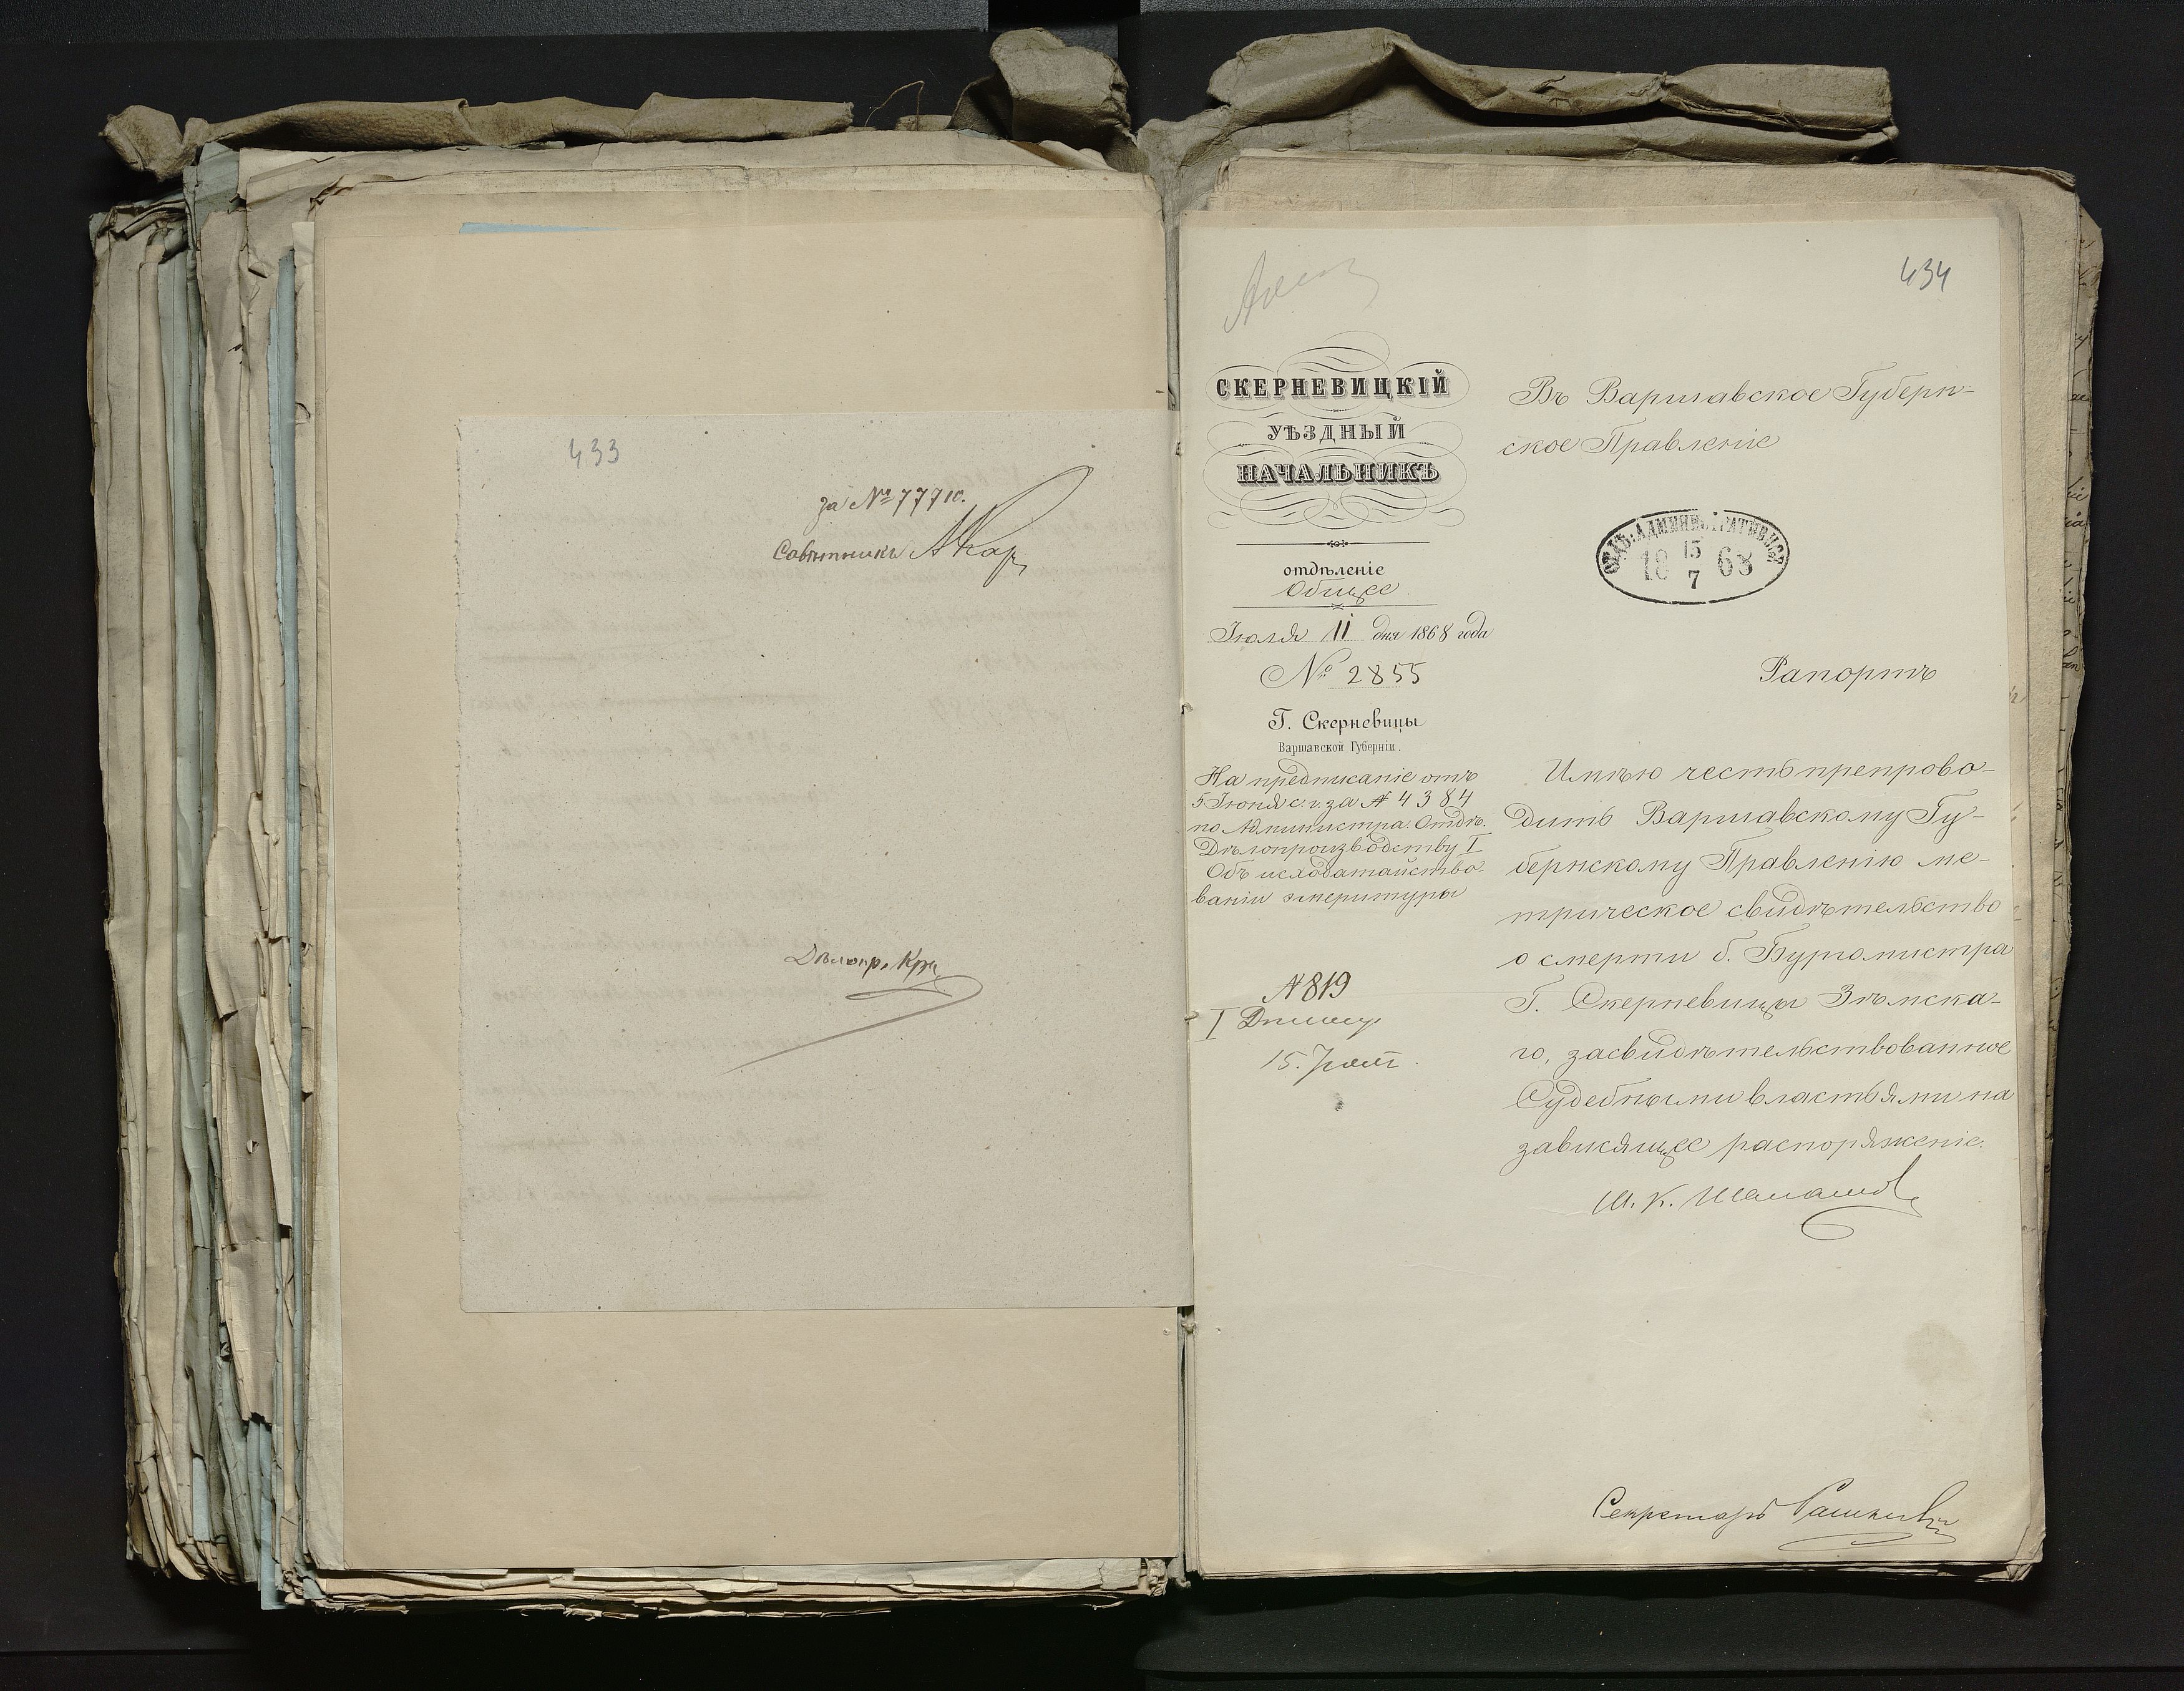 433
за № 77710.
Совѣтникъ
Дѣлопр.
434
СКЕРНЕВИЦКІЙ
УѢЗДНЫЙ
НАЧАЛЬНИКЪ
отдѣленіе
Общее
Іюля 11 дня 1868 года
№ 2855
Г. Скерневицы
Варшавской Губерніи.
На предписаніе отъ
5 Іюня с. г. за № 4384
по Администра. Отдѣ.
Дѣлопроизводству I
Объ исходатайство-
ваніи эмеритуры
№ 819
I
15.
Въ Варшавское Губерн-
ское Правленіе
ОТДѢ: АДМИНИСТРАТИВНОЕ
18 15/7 68
Рапортъ
Имѣю честь препрово-
дить Варшавскому Гу-
бернскому Правленію ме-
трическое свидѣтельство
о смерти б. Бургомистра
Г. Скерневицы Зѣмска-
го, засвидѣтельствованное
Судебными властьями на
зависящее распоряженіе.
Секретарь